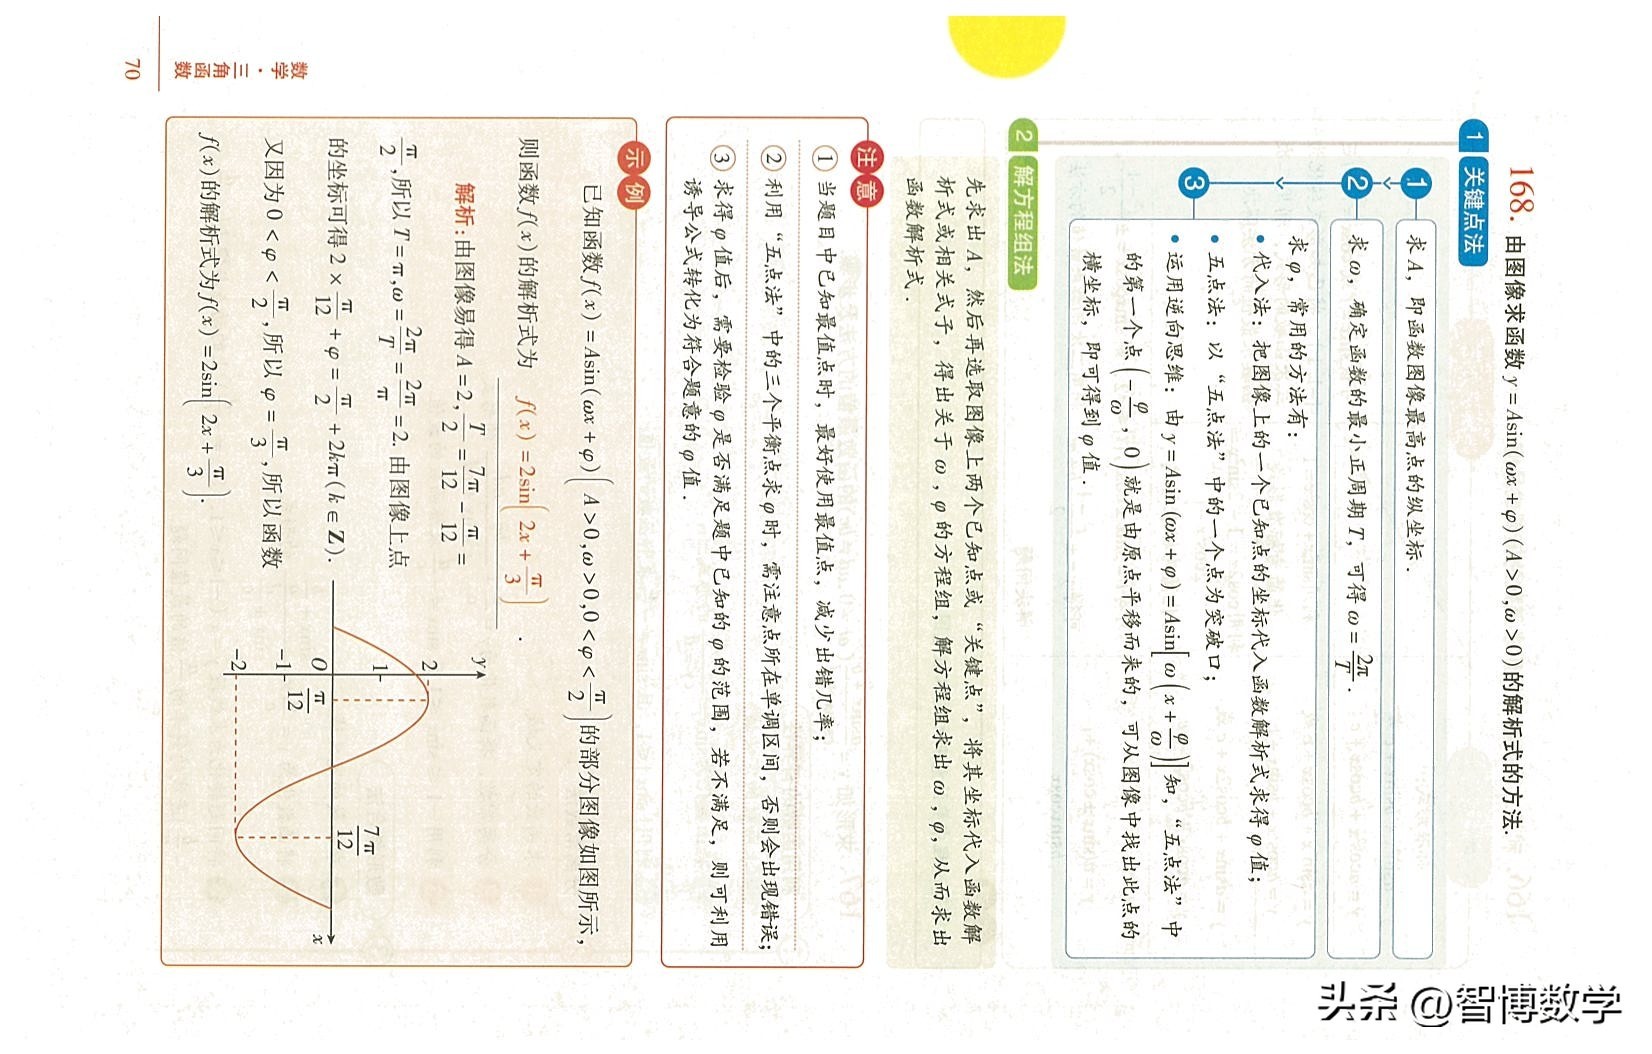 168. 由图像求函数 y=Asin(ωx+φ)(A>0,ω>0)的解析式的方法.
1 关键点法
1 求 A，即函数图像最高点的纵坐标.
2 求 ω，确定函数的最小正周期 T，可得 ω=2π/T.
3 求 φ，常用的方法有：
• 代入法：把图像上的一个已知点的坐标代入函数解析式求得 φ 值；
• 五点法：以“五点法”中的一个点为突破口；
• 运用逆向思维：由 y=Asin(ωx+φ)=Asin[ω(x+φ/ω)]知，“五点法”中
的第一个点(-φ/ω, 0)就是由原点平移而来的，可从图像中找出此点的
横坐标，即可得到 φ 值.
2 解方程组法
先求出 A，然后再选取图像上两个已知点或“关键点”，将其坐标代入函数解
析式或相关式子，得出关于 ω，φ 的方程组，解方程组求出 ω，φ，从而求出
函数解析式.
注意
① 当题目中已知最值点时，最好使用最值点，减少出错几率；
② 利用“五点法”中的三个平衡点求 φ 时，需注意点所在单调区间，否则会出现错误；
③ 求得 φ 值后，需要检验 φ 是否满足题中已知的 φ 的范围，若不满足，则可利用
诱导公式转化为符合题意的 φ 值.
示例
已知函数 f(x)=Asin(ωx+φ)(A>0,ω>0,0<φ<π/2)的部分图像如图所示，
则函数 f(x)的解析式为 f(x)=2sin(2x+π/3).
解析：由图像易得 A=2,T/2=7π/12-π/12=
π/2,所以 T=π,ω=2π/T=2π/π=2.由图像上点
的坐标可得 2×π/12+φ=π/2+2kπ(k∈Z).
又因为 0<φ<π/2,所以 φ=π/3,所以函数
f(x)的解析式为 f(x)=2sin(2x+π/3).
y
2
1
O
-1
-2
π/12
7π/12
x
数学·三角函数
70
头条 @智博数学